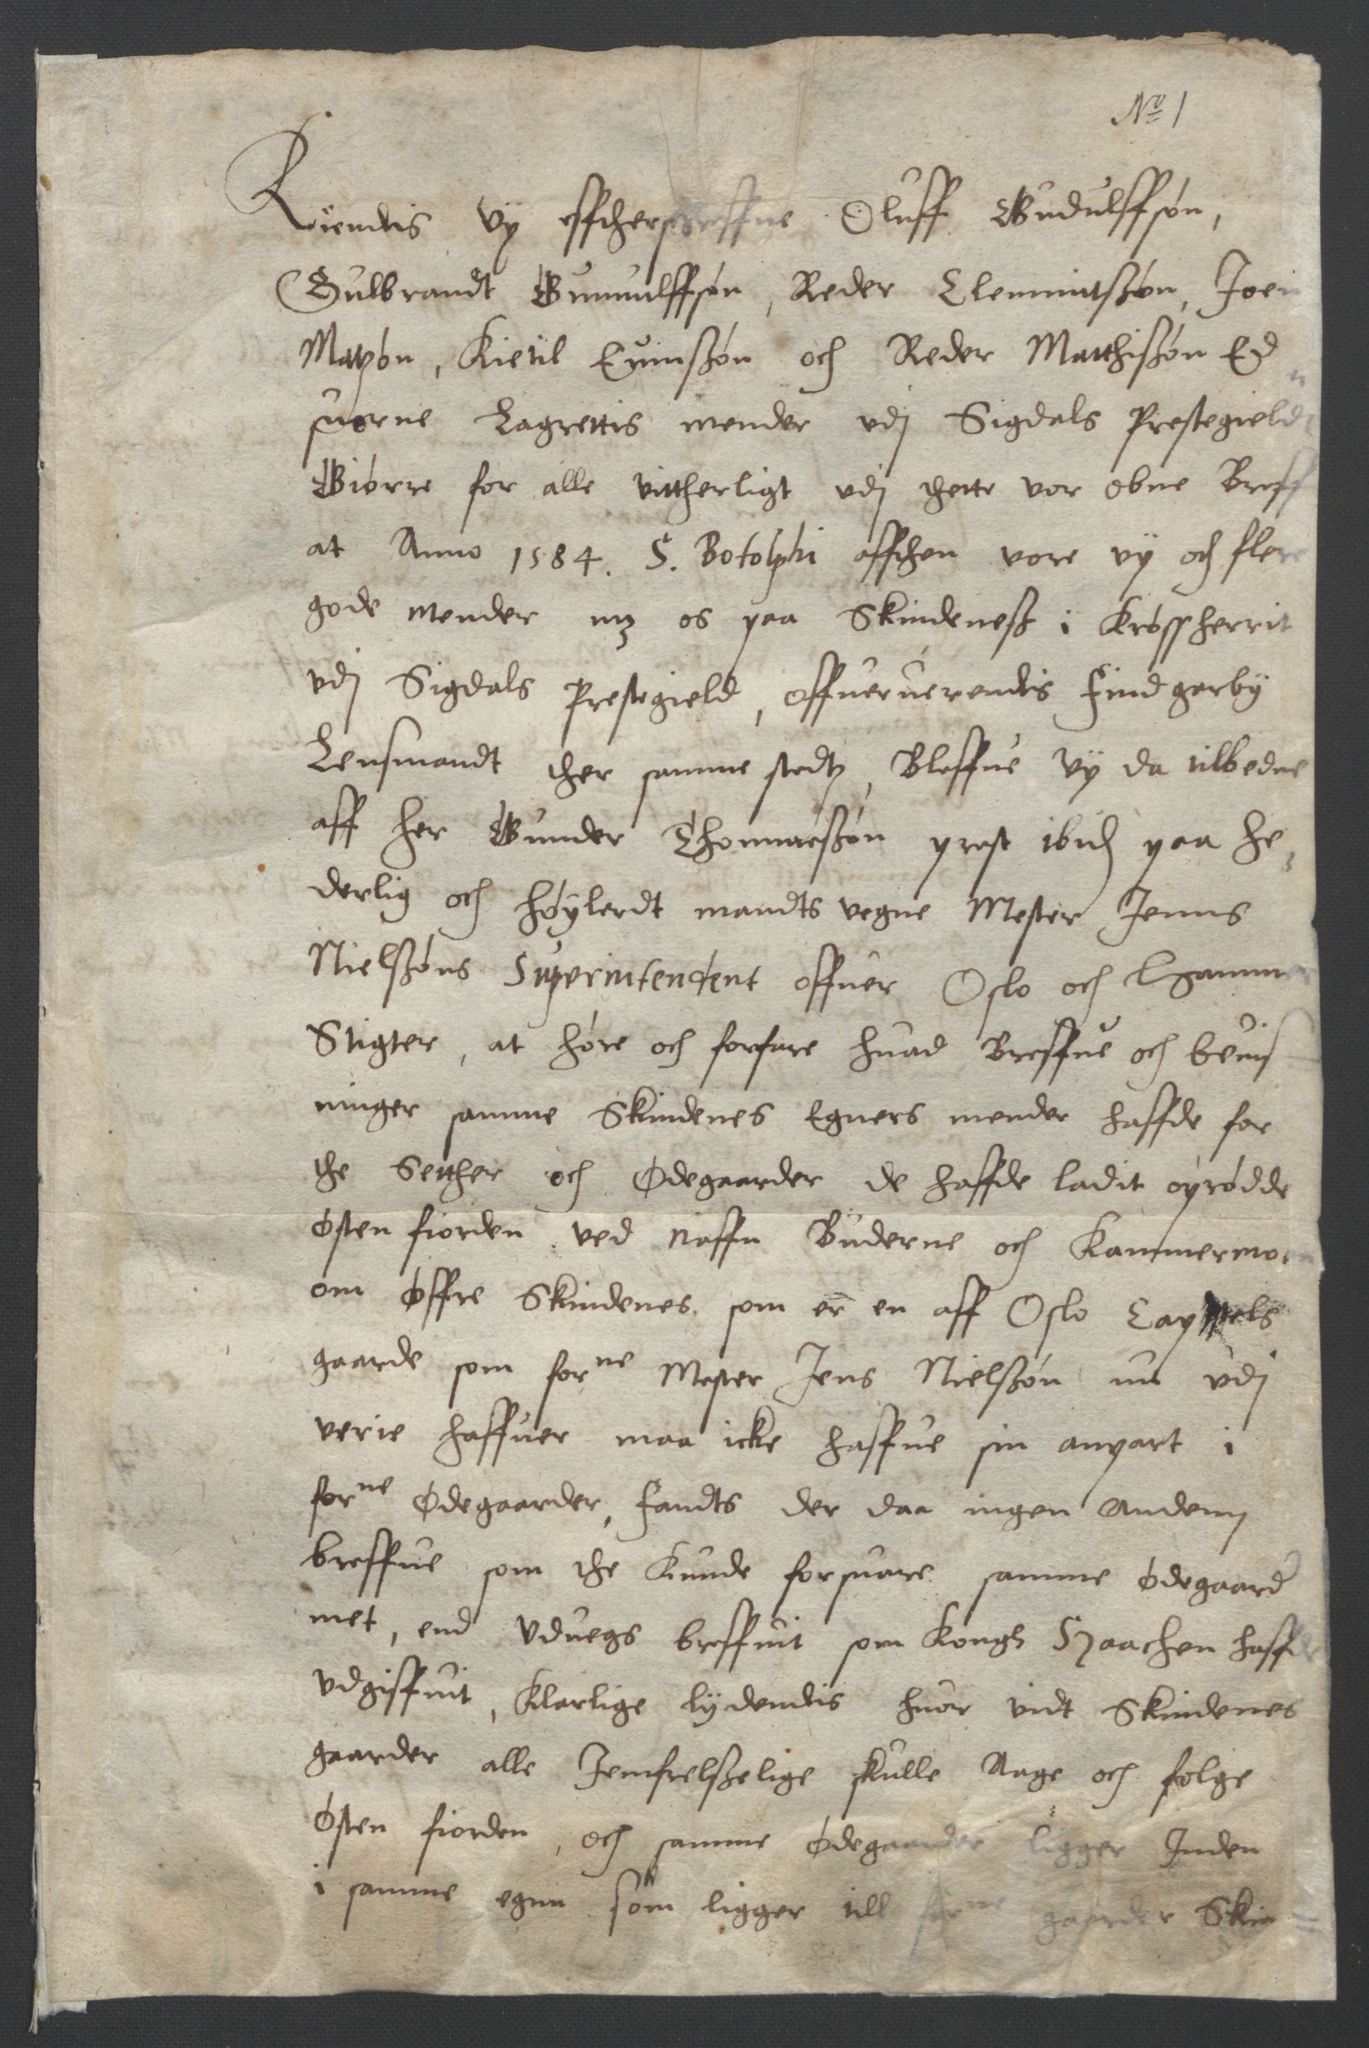 No 1
Kiendis vij effthersreffne Oluff Gudulffsøn,
Gulbrandt Gunnulffsøn, Reder Clemmitszøn, Joen
Matzøn, Kietil Euinszøn och Reder Matthiszøn Ed
suorne Lagrettis mender vdj Sigdals Prestegield,
Giørre for alle vittherligt vdj thette vor obne Breff
at Anno 1584. S. Botolphi afften vore vij och flere
gode mender mz os paa Skindenesz i Krøssherrit
vdj Sigdals Prestegield, offueruerendis Find garbÿ
Lensmandt ther samme stedtz, Bleffue vÿ da tilbedne
aff her Gunder Thommeszøn prest ibid paa he,
derlig och høÿlerdt mandts vegne Mester Jenns
Nielszøns Superintendent offuer Oslo och Hammer
Stigter, at høre och forfare huad Breffue och beuis
ninger samme Skindenes Egners mender haffde for
the Setther och Ødegaarder de haffde ladit oprødde
østen fiorden ved naffn Buderne och Kammermoen
om øffre Skindenes som er en aff Oslo Cappitels
gaarde som forne Mester Jens Nielszøn nu vdj
verie haffuer maa icke haffue sin anpart i
forne Ødegaarder, fandts der daa ingen andenn
breffue som the kunde forsuare samme ødegaard
met, end vduegs breffuit som Kongh Haachen haffde
vdgiffuit, klarlige lÿdendis huor vidt Skindenes
gaarder alle Jemfrelszelige skulle aage och følge
Østen fiorden, och samme Ødegaarder ligger Inden
i samme egnn som ligger till forne gaarder Skin=